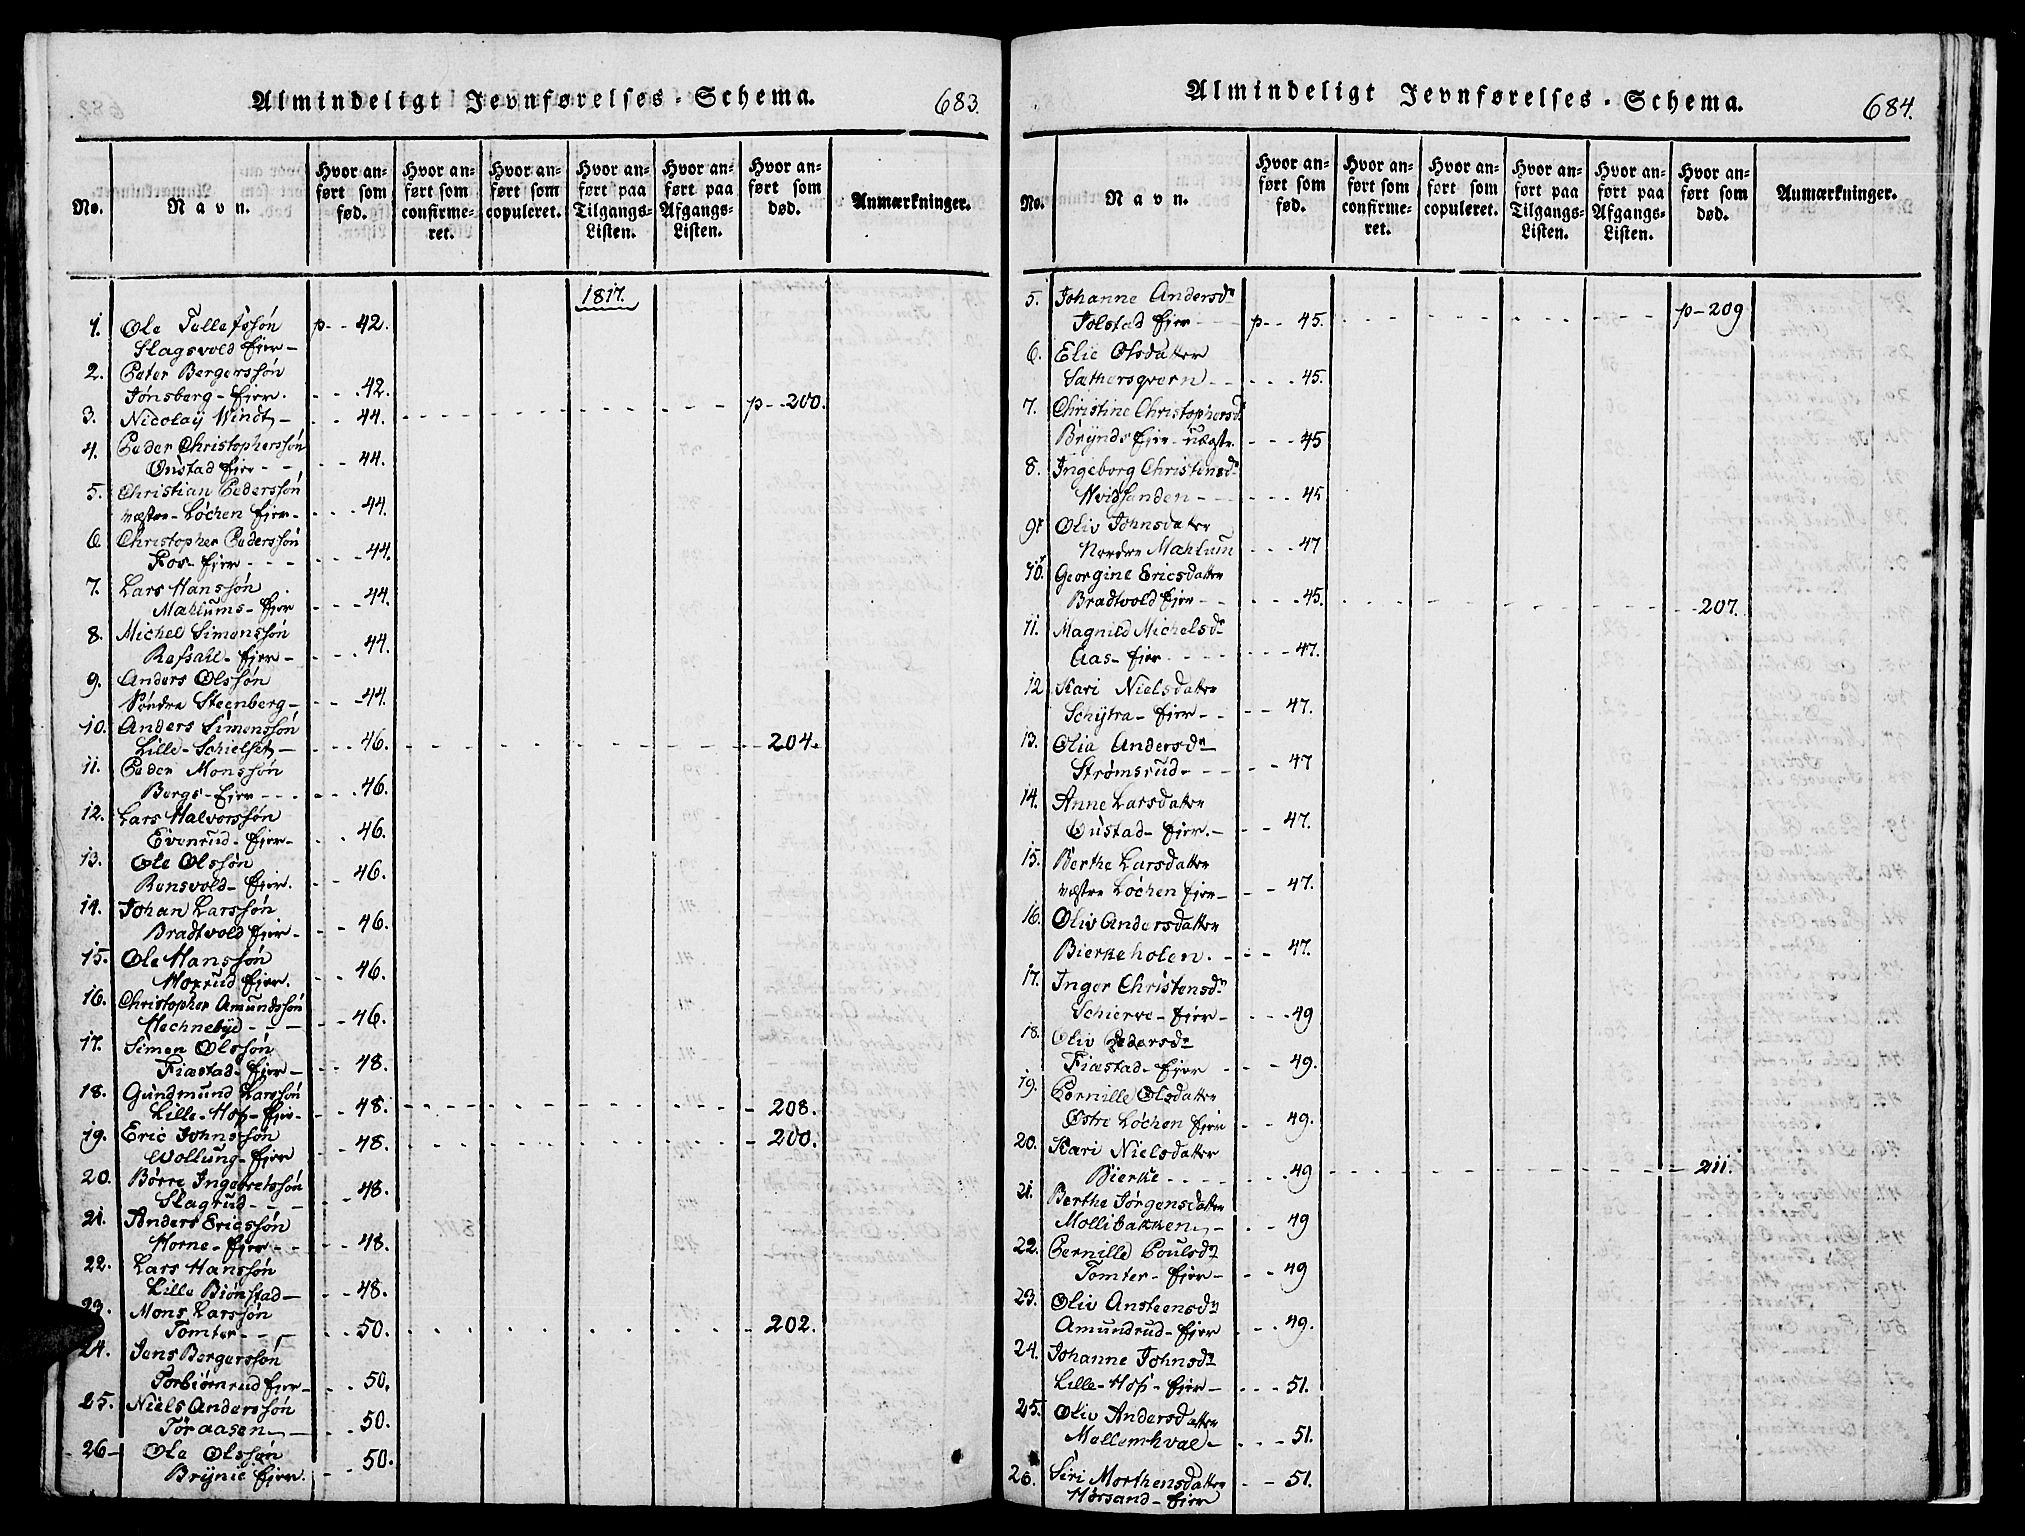 Almindeligt Jevnførelses-Schema. 683.
No. Navn. Hvor anført som fød. Hvor anført som confirmeret. Hvor anført som copuleret. Hvor anført paa Tilgangs-Listen. Hvor anført paa Afgangs-Listen. Hvor anført som død. Anmærkninger.
1817.
1. Ole Tollefssøn p - - 42.
Slagsvold Ejer -
2. Peter Bergerssøn
Jønsberg - Ejer. - - - 42.
3. Nicolaÿ Windt - - - 44. p - - 200.
4. Peder Christopherssøn
Onstad Ejer - - - - 44.
5. Christian Pederssøn
væstre - Løchen Ejer - - - - 44.
6 Christopher Pederssøn
Fos - Ejer - - - - - - 44.
7. Lars Hanssøn
Mahlums - Ejer - - - 44.
8. Michel Simenssøn
Refsahl - Ejer - - - - 44.
9. Anders Olssøn
Søndre Steenberg - - - - 44.
10. Anders Simenssøn
Lille - Schielset - - - - 46. 204.
11. Peder Monssøn
Bergs - Ejer - - - - - - 46.
12. Lars Halvorssøn
Evenrud - Ejer - - - 46.
13. Ole Olssøn
Rensvold - Ejer. - - 46.
14. Johan Larssøn
Bradtvold Ejer - - - 46.
15. Ole Hanssøn
Hoxrud Ejer. - - 46.
16. Christopher Amundssøn
Hechnebÿe - - - - - 46.
17. Simen Olssøn
Fiæstad - Ejer - - - 48.
18. Gundmund Larssøn
Lille - Hof - Ejer - - - 48. 208.
19. Eric Johnssøn
Wollung - Ejer - - 48. 200.
20. Børre Ingebretssøn
Slagrud - - - - - 48.
21. Anders Ericssøn
Horne - Ejer - - - - 48.
22. Lars Hanssøn
Lille Biønstad - - - 48.
23. Mons Larssøn
Tomter - - - - - 50. 202.
24. Jens Bergerssøn
Torbiørnrud Ejer - - - 50.
25. Niels Anderssøn
Toraasen - - - 50.
26 - Ole Olssøn
Brÿnie Ejer. - - 50.
Almindeligt Jevnførelses-Schema. 684.
No. Navn. Hvor anført som fød. Hvor anført som confirmeret. Hvor anført som copuleret. Hvor anført paa Tilgangs-Listen. Hvor anført paa Afgangs-Listen. Hvor anført som død. Anmærkninger.
5. Johanne Andersdr
Jolstad Ejer - - p - - 45. p - 209
6. Elie Olsdatter
Sæthersqvern - - - - - 45.
7. Christine Christophersdr
Brÿnds Ejer - uægte. - - - 45
8. Ingeborg Christensdr
Hvidsanden - - - - - 45
9. Oliv Johnsdatter
Nordre Mahlum - - - 47
10. Georgine Ericsdatter
Bradtvold Ejer - - - - - 45. 207.
11. Magnild Michelsdr
Aas - Ejer - - - - - - - 47.
12 Kari Nielsdatter
Schÿtra - Ejer - - - - 47.
13. Olia Andersdr
Strømsrud - - - - - 47
14. Anne Larsdatter
Onstad - Ejer. - - - 47.
15. Berthe Larsdatter
væstre Løchen Ejer - - - 47.
16. Oliv Andersdatter
Bierkeholen. - - - 47.
17. Inger Christensdr
Schierve - Ejer - - - - 49
18. Oliv Pedersdr
Fiæstad - Ejer - - - 49.
19. Pernille Olsdatter
Østre Løchen Ejer - - 49.
20. Kari Nielsdatter
Bierke - - - - - - 49 211.
21. Berthe Jørgensdatter
Mollibakken - - - 49
22. Pernille Poulsdr
Tomter - Ejer - - - 49
23. Oliv Ansteensdr
Amundrud - Ejer - - - 49.
24. Johanne Johnsdr
Lille - Hof - Ejer - - - - 51.
25. Oliv Andersdatter
Mellemhval - - - - 51.
26. Siri Morthensdatter - - 51.
Horsand - Ejer